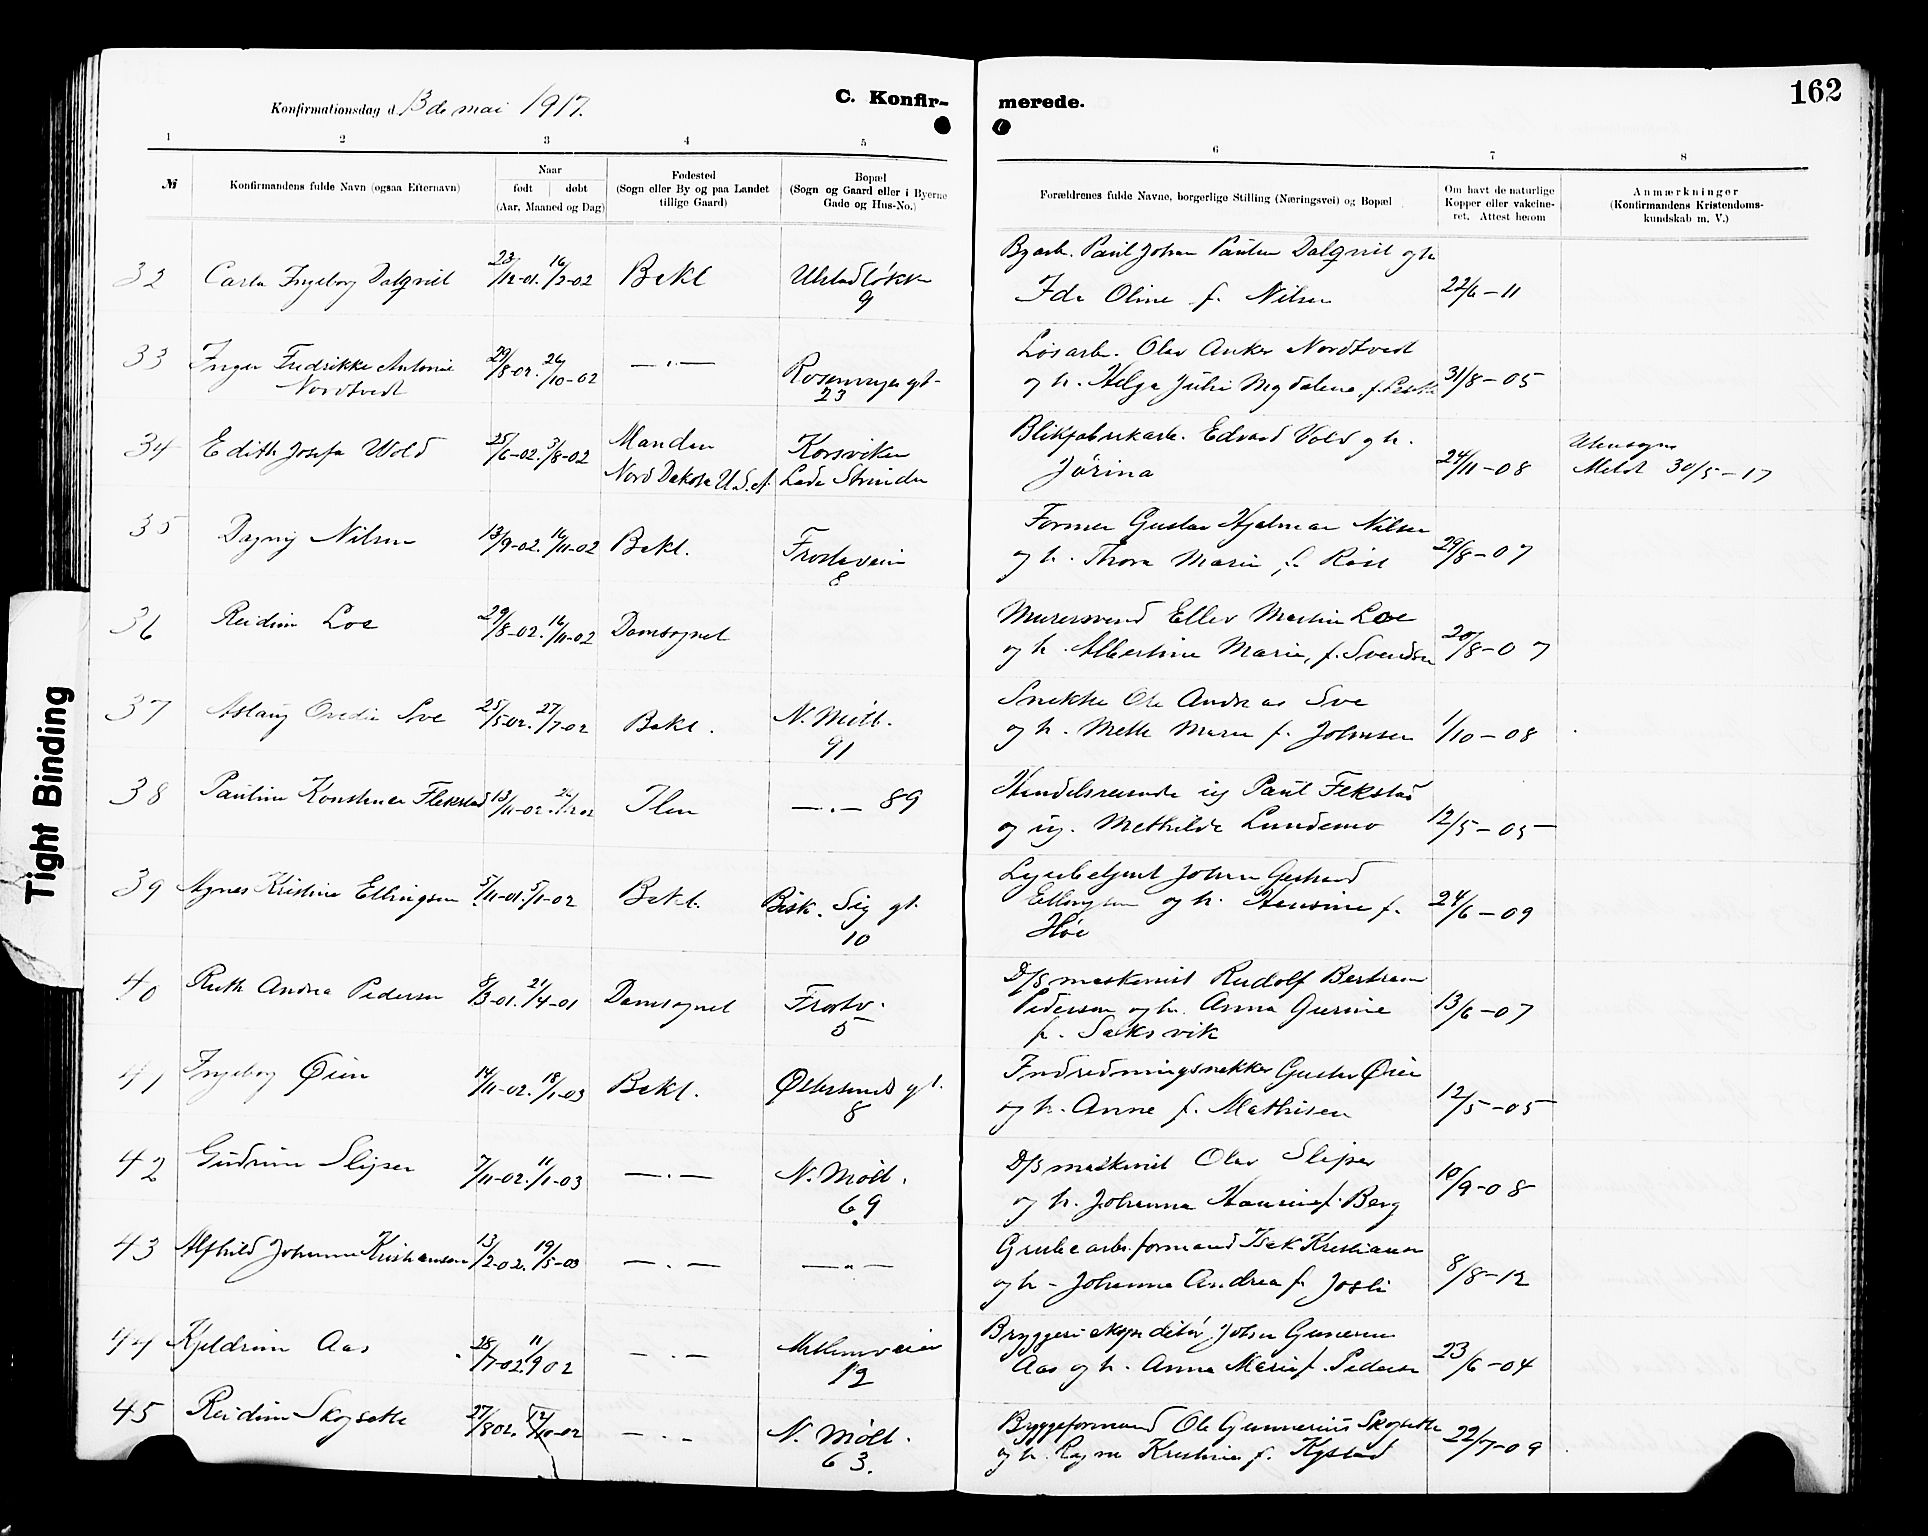 162
Konfirmationsdag d. 13de mai 1917.
C. Konfir-
merede.
1 2 3 4 5 6 7 8
№
Konfirmandens fulde Navn (ogsaa Efternavn)
Naar
født døbt
(Aar, Maaned og Dag)
Fødested
(Sogn eller By og paa Landet
tillige Gaard)
Bopæl
(Sogn og Gaard eller i Byerne
Gade og Hus-No.)
Forældrenes fulde Navne, borgerlige Stilling (Næringsvei) og Bopæl
Om havt de naturlige
Kopper eller vakcine-
ret. Attest herom
Anmærkninger
(Konfirmandens Kristendoms-
kundskab m. V.)
32 Carla Ingeborg Dalqvist 23/12-01. 16/2-02 Bakl Ulstadløkk 9
Byarb. Paul Johan Dalqvist og h
Ida Oline f. Nilsen 22/6-11
33 Inger Fredrikke Antonie
Nordtvedt 29/8-02. 26/10-02 —"— Rosenborg gt. 23
Løsarb. Olav Anker Nordtvedt
og h. Helga Julie Magdalena f. 31/8-05
34 Edith Josefa Wold 25/6-02. 3/8-02 Mandan
Nord Dakota U.S.A. Korsviken
Lade Strinden
Blikfabrikarb. Edvard Vold og h.
Jørina 24/11-08 Utensogns
Meldt 30/5-17
35 Dagny Nilsen 13/9-02. 16/11-02 Bakl. Frostaveien 8
Former Gustav Hjalmar Nilsen
og h. Thora Marie f. 29/8-07
36 Reidun Loe 29/8-02. 16/11-02 Domsognet
Murersvend Ellev Martin Loe
og h. Albertine Marie, f. Svendsen 20/8-07
37 Aslaug Sve 25/5-02. 27/7-02 Bakl. N. Møll. 91
Snekker Ole Andreas Sve
og h. Mette Marie f. Johnsen 1/10-08
38 Pauline Konstance Flekstad 13/11-02. 26/12 02 Ilen —"— 89
Handelsreisende ug Paul Fekstad
og ug. Mathilde Lundemo 12/5-05
39 Agnes Kristine Ellingsen 5/11-01. 5/1-02 Bakl. Bisk. Sig gt. 10
Johan Gerhard
Ellingsen og h. Hansine f.
Høe 24/6-09
40 Ruth Andrea Pedersen 8/3-01. 21/4-01 Domsognet Frostv. 5
D/S maskinist Rudolf Bertram
Pedersen og h. Anna Gurine
f. Saksvik 13/6-07
41 Ingeborg Øien 14/11-02. 18/1-03 Bakl. Østersunds gt. 8
Indredningsnekker Gustav Øien
og h. Anne f. Mathisen 12/5-05
42 Gudrun Slipser 7/11-02. 11/1-03 —"— N. Møll. 69
D/S maskinist Olav Slipser
og h. Johanna f. Berg 10/9-08
43 Alfhild Johanne Kristiansen 13/2-02. 19/5-03 —"— —"—
Grubearb. formand Isak Kristiansen
og h - Johanna Andrea f. Josli 8/8-12
44 Kjeldrun Aas 28/7-02. 11/9 02 —"— 12
Bryggeri ekspeditør Johan Gunerius
Aas og h. Anna Marie f. Pedersen 23/6-04
45 Reidun Skogseth 27/8 02. 12/10-02 —"— N. Møll. 63.
Bryggeformand Ole Gunnerius Skogseth
og h. Kristine f. Kystad 22/7-09
Tight Binding